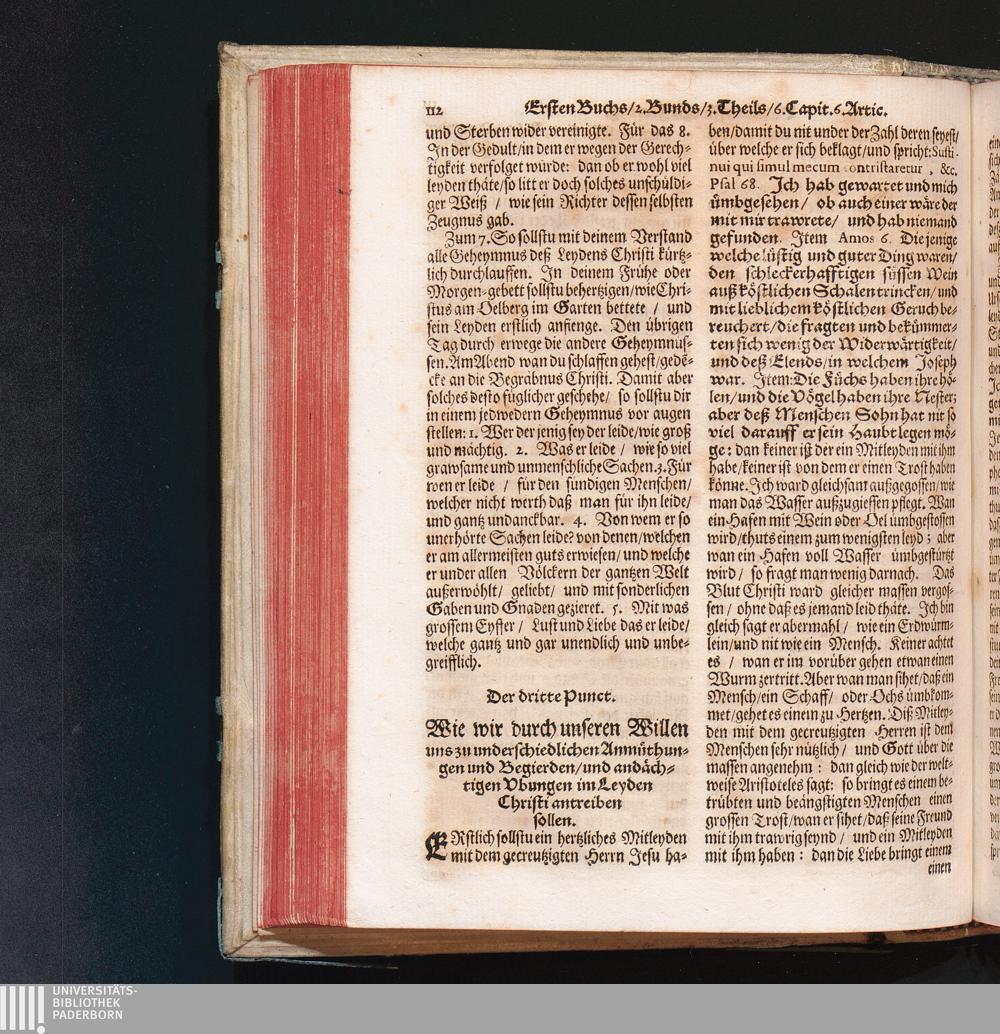 112 Ersten Buchs/2. Bunds/3. Theils/6. Capit. 6. Artic.
und Sterben wider vereinigte. Für das 8.
In der Gedult/in dem er wegen der Gerech-
tigkeit verfolget wurde: dan ob er wohl viel
leyden thäte/so litt er doch solches unschüldi-
ger Weiß / wie sein Richter dessen selbsten
Zeugnus gab.
Zum 7. So sollstu mit deinem Verstand
alle Geheymnus deß Leydens Christi kürtz-
lich durchlauffen. In deinem Frühe oder
Morgen-gebett sollstu behertzigen/wie Chri-
stus am Oelberg im Garten bettete / und
sein Leyden erstlich anfienge. Den übrigen
Tag durch erwege die andere Geheymnus-
sen. Am Abend wan du schlaffen gehest/gedē-
cke an die Begräbnus Christi. Damit aber
solches desto füglicher geschehe/ so sollstu dir
in einem jedwedern Geheymnus vor augen
stellen: 1. Wer der jenig sey der leide/wie groß
und mächtig. 2. Was er leide / wie so viel
grawsame und unmenschliche Sachen. 3. Für
wen er leide / für den sündigen Menschen/
welcher nicht werth daß man für ihn leide/
und gantz undanckbar. 4. Von wem er so
unerhörte Sachen leide? von denen/welchen
er am allermeisten guts erwiesen/und welche
er under allen Völckern der gantzen Welt
außerwöhlt/ geliebt/ und mit sonderlichen
Gaben und Gnaden gezieret. 5. Mit was
grossem Eyffer / Lust und Liebe das er leide/
welche gantz und gar unendlich und unbe-
greifflich.
Der dritte Punct.
Wie wir durch unseren Willen
uns zu underschiedlichen Anmüthun-
gen und Begierden/und andäch-
tigen Ubungen im Leyden
Christi antreiben
sollen.
ERstlich sollstu ein hertzliches Mitleyden
mit dem gecreutzigten Herrn Jesu ha-
ben/damit du nit under der Zahl deren seyest/
über welche er sich beklagt/und spricht: Susti-
nui qui simul mecum contristaretur, &c.
Psal 68. Ich hab gewartet und mich
ümbgesehen/ ob auch einer wäre der
mit mir trawrete/ und hab niemand
gefunden. Item Amos 6. Die jenige
welche lüstig und guter Ding waren/
den schleckerhafftigen süssen Wein
auß köstlichen Schalen trincken/und
mit lieblichem köstlichen Geruch be-
reuchert/die fragten und bekümmer-
ten sich wenig der Widerwärtigkeit/
und deß Elends/in welchem Joseph
war. Item: Die Füchs haben ihre hö-
len/und die Vögel haben ihre Nester;
aber deß Menschen Sohn hat nit so
viel darauff er sein Haubt legen mö-
ge: dan keiner ist der ein Mitleyden mit ihm
habe/keiner ist von dem er einen Trost haben
könne. Ich ward gleichsam außgegossen/wie
man das Wasser außzugiessen pflegt. Wan
ein Hafen mit Wein oder Oel ümbgestossen
wird/thuts einem zum wenigsten leyd; aber
wan ein Hafen voll Wasser ümbgestürtzt
wird/ so fragt man wenig darnach. Das
Blut Christi ward gleicher massen vergos-
sen/ ohne daß es jemand leid thäte. Ich bin
gleich sagt er abermahl/ wie ein Erdwürm-
lein/und nit wie ein Mensch. Keiner achtet
es / wan er im vorüber gehen etwan einen
Wurm zertritt. Aber wan man sihet/daß ein
Mensch/ein Schaff/ oder Ochs ümbkom-
met/gehet es einem zu Hertzen. Diß Mitley-
den mit dem gecreutzigten Herren ist dem
Menschen sehr nützlich/ und Gott über die
massen angenehm: dan gleich wie der welt-
weise Aristoteles sagt: so bringt es einem be-
trübten und beängstigten Menschen einen
grossen Trost/wan er sihet/daß seine Freund
mit ihm trawrig seynd/ und ein Mitleyden
mit ihm haben: dan die Liebe bringt einem
einen
UNIVERSITÄTS-
BIBLIOTHEK
PADERBORN